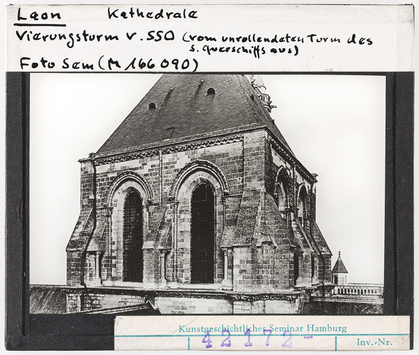 Laon Kathedrale
Vierungsturm v. SSO (vom unvollendeten Turm des
s. Querschiffs aus)
Foto Sem (M 166 090)
Kunstgeschichtliches Seminar Hamburg
42172- Inv.-Nr.